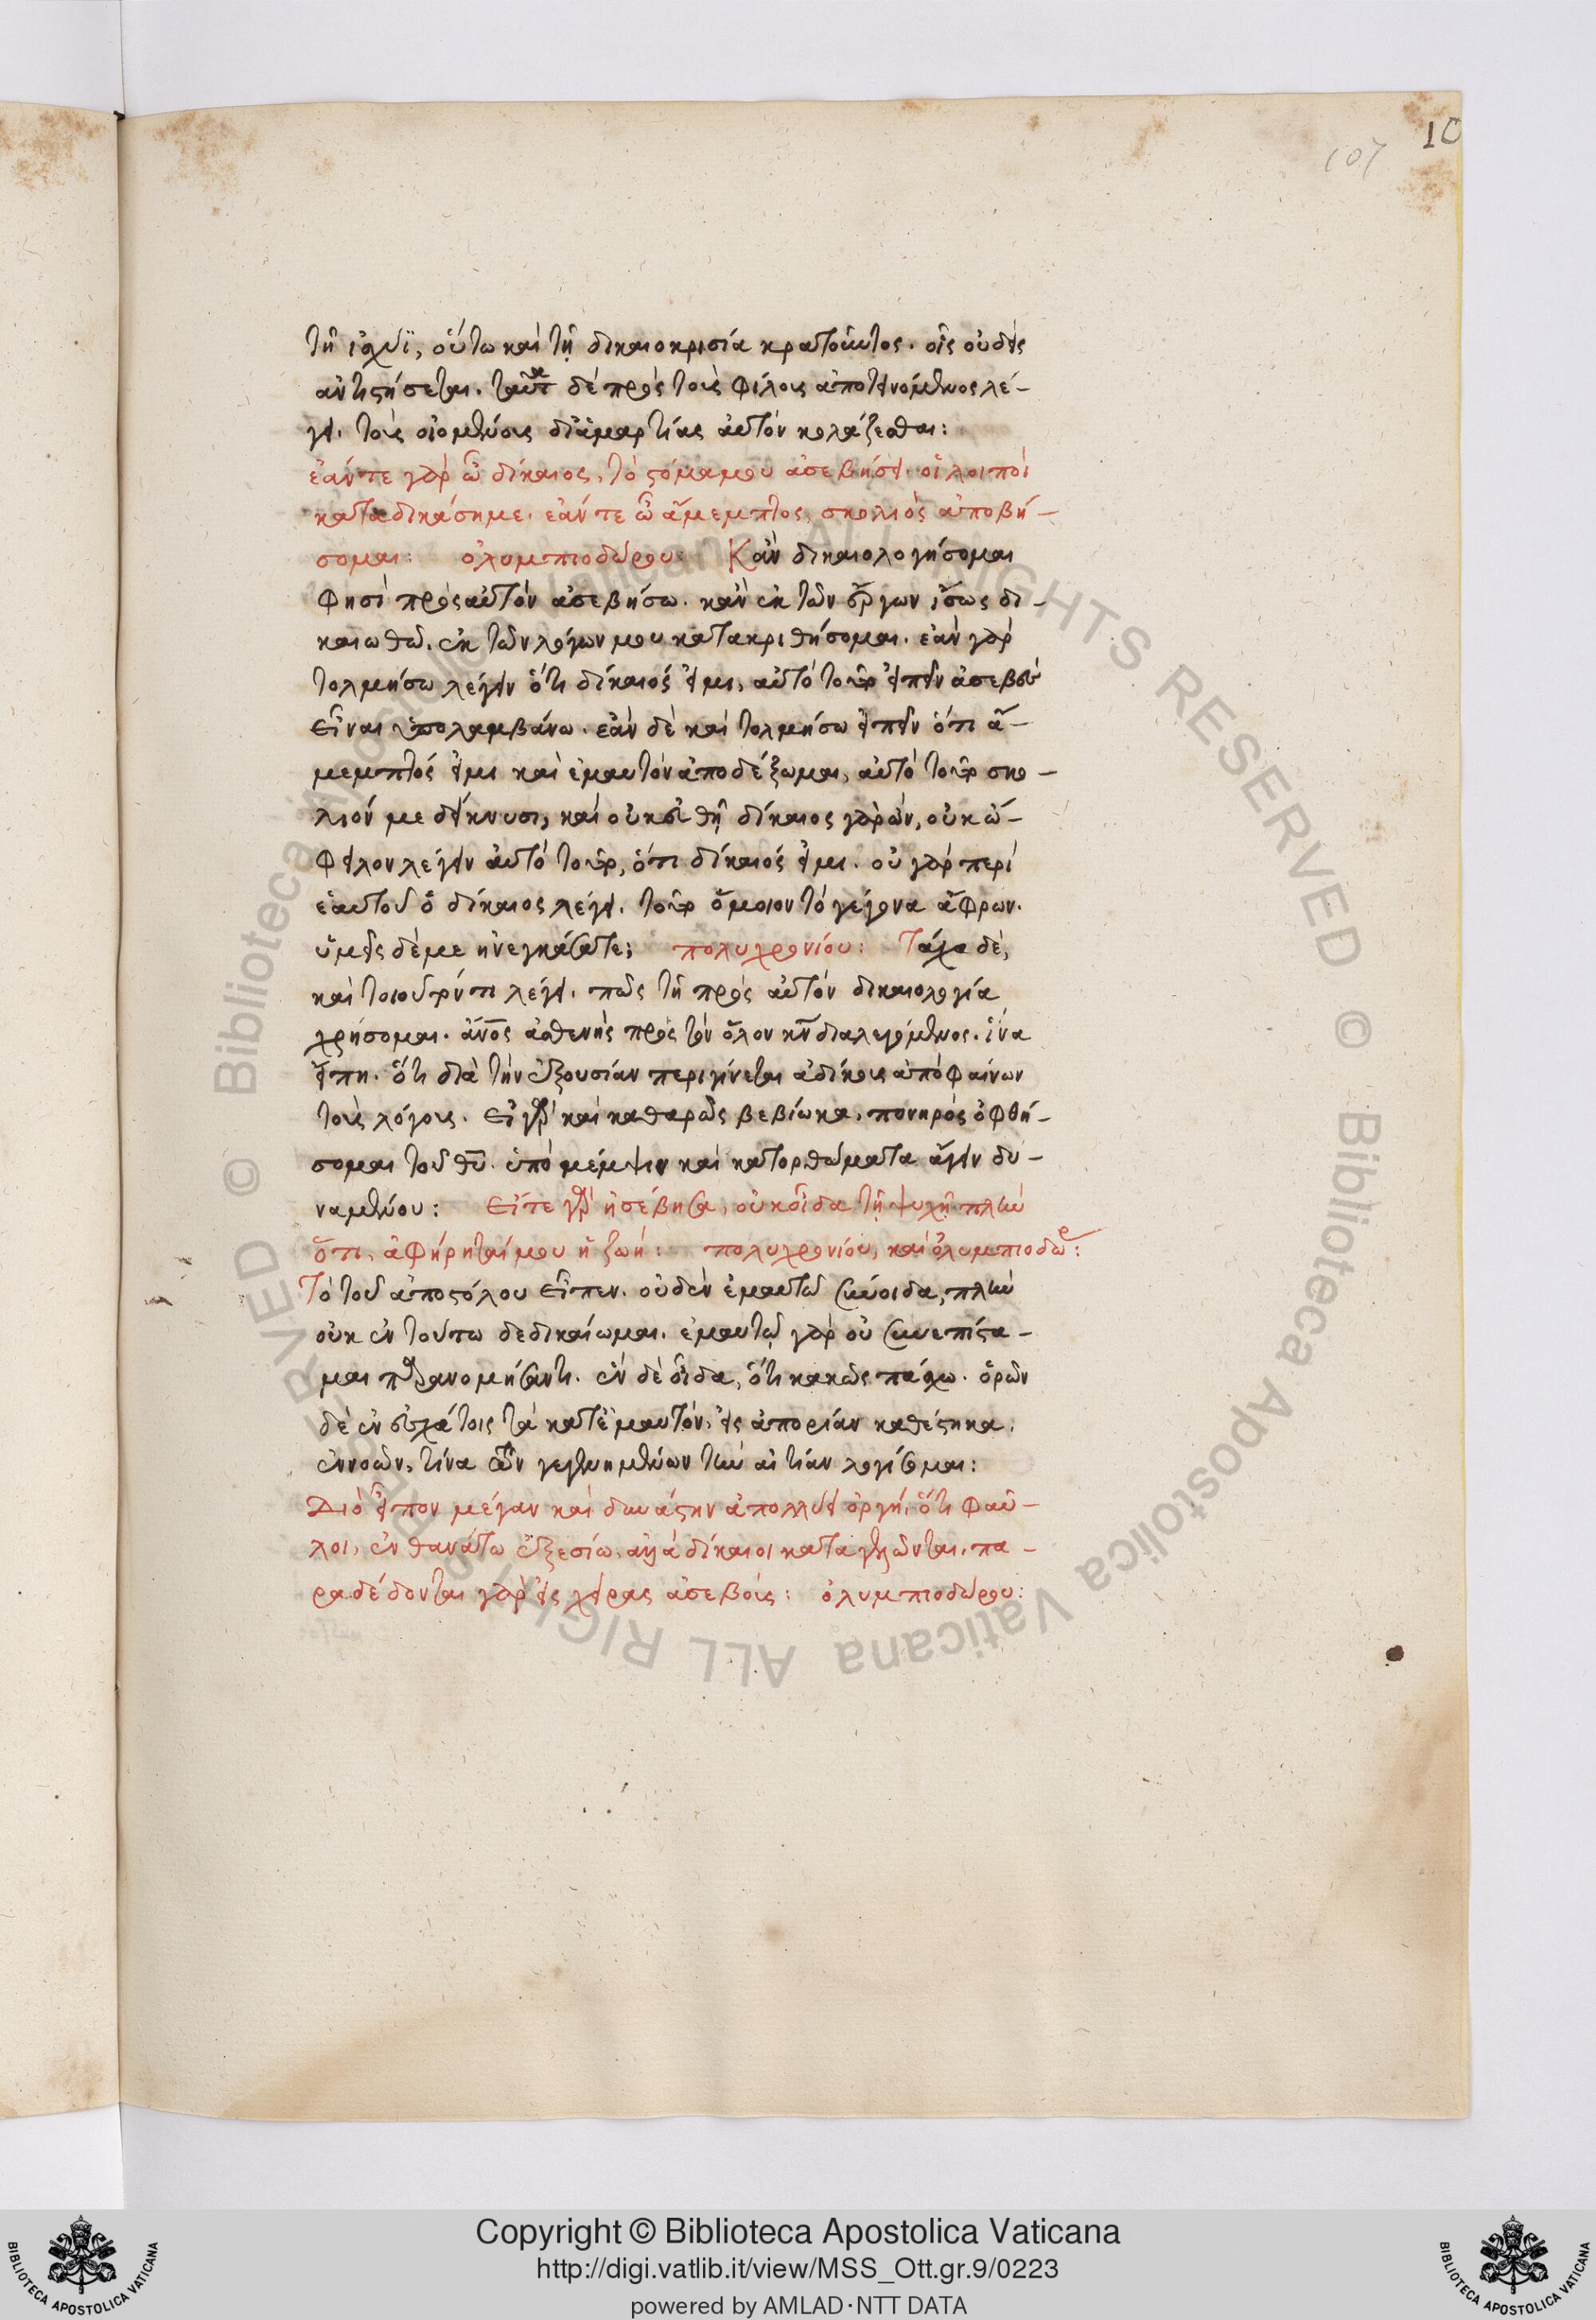 107
10
τῆ ἰσχύϊ, οὕτω καὶ τῆ δικαιοκρισία κρατοῦντος. οἷς οὐδεὶς
ἀντιστήσεται. ταῦτα δὲ πρὸς τοὺς φίλους ἀποτεινόμενος λέ-
γει. τοὺς οἰομένους δι' ἁμαρτίας αὐτὸν κολάζεσθαι:
ἐάν τε γὰρ ὦ δίκαιος, τὸ στόμα μου ἀσεβήσει. οἱ λοιποὶ
καταδικάσει με. ἐάν τε ὦ ἄμεμπτος, σκολιὸς ἀποβή-
σομαι: ὀλυμπιοδώρου: Κἂν δικαιολογήσομαι
φησὶ πρὸς αὐτὸν ἀσεβήσω. κἂν ἐκ τῶν ἔργων ἴσως δι-
καιωθῶ. ἐκ τῶν λόγων μου κατακριθήσομαι. ἐὰν γὰρ
τολμήσω λέγειν ὅτι δίκαιός εἰμι, αὐτὸ τοῦτο εἰπεῖν ἀσεβὲς
εἶναι ὑπολαμβάνω. ἐὰν δὲ καὶ τολμήσω εἰπεῖν ὅτι ἄ-
μεμπτός εἰμι καὶ ἐμαυτὸν ἀποδέξωμαι, αὐτὸ τοῦτο σκο-
λιόν με δείκνυσι, καὶ οὐκ εὐθῆ δίκαιος γὰρ ὢν, οὐκ ὤ-
φειλον λέγειν αὐτὸ τοῦτο, ὅτι δίκαιός εἰμι. οὐ γὰρ περὶ
ἑαυτοῦ ὁ δίκαιος λέγει. τοῦτο ὅμοιον τὸ γέγονα ἄφρων.
ὑμεῖς δέ με ἠνεγκάσατε: πολυχρονίου: Τάχα δὲ,
καὶ τοιοῦτόν τι λέγει. πῶς τῆ πρὸς αὐτὸν δικαιολογία
χρήσομαι. ἄνος ἀσθενὴς πρὸς τὸν ὅλον κν διαλεγόμενος. ἵνα
εἴπη. ὅτι διὰ τὴν ἐξουσίαν περιγίνεται ἀδίκους ἀποφαίνων
τοὺς λόγους. εἰ γὰρ καὶ καθαρῶς βεβίωκα. πονηρὸς ὀφθή-
σομαι τοῦ θυ. ὑπὸ μέμψιν καὶ κατορθώματα ἄγειν δυ-
ναμένου: εἴτε γὰρ ἠσέβησα, οὐκ οἶδα τῆ ψυχῆ πλὴν
ὅτι, ἀφήρηταί μου ἡ ζωή: πολυχρονίου, καὶ ὀλυμπιοδώρ:
Τὸ τοῦ ἀποστόλου εἶπεν. οὐδὲν ἐμαυτῶ σύνοιδα, πλὴν
οὐκ ἐν τούτω δεδικαίωμαι. ἐμαυτῷ γὰρ οὐ συνεπίστα-
μαι παρανομήσαντι. ἓν δὲ οἶδα, ὅτι κακῶς πάσχω. ὁρῶν
δὲ ἐν ἐσχάτοις τὰ κατ' ἐμαυτὸν, εἰς ἀπορίαν καθέστηκα.
ἐννοῶν, τίνα τῶν γεγενημένων τὴν αἰτίαν λογίσομαι:
Διὸ εἶπον μέγαν καὶ δυνάστην ἀπολλύει ὀργή, ὅτι φαῦ-
λοι, ἐν θανάτω ἐξαισίω. ἀλλὰ δίκαιοι καταγελῶνται. πα-
ραδέδονται γὰρ εἰς χεῖρας ἀσεβοῖς: ὀλυμπιοδώρου:
Biblioteca Apostolica Vaticana ALL RIGHTS RESERVED ©
Copyright © Biblioteca Apostolica Vaticana
http://digi.vatlib.it/view/MSS_Ott.gr.9/0223
powered by AMLAD·NTT DATA
BIBLIOTECA APOSTOLICA VATICANA
BIBLIOTECA APOSTOLICA VATICANA